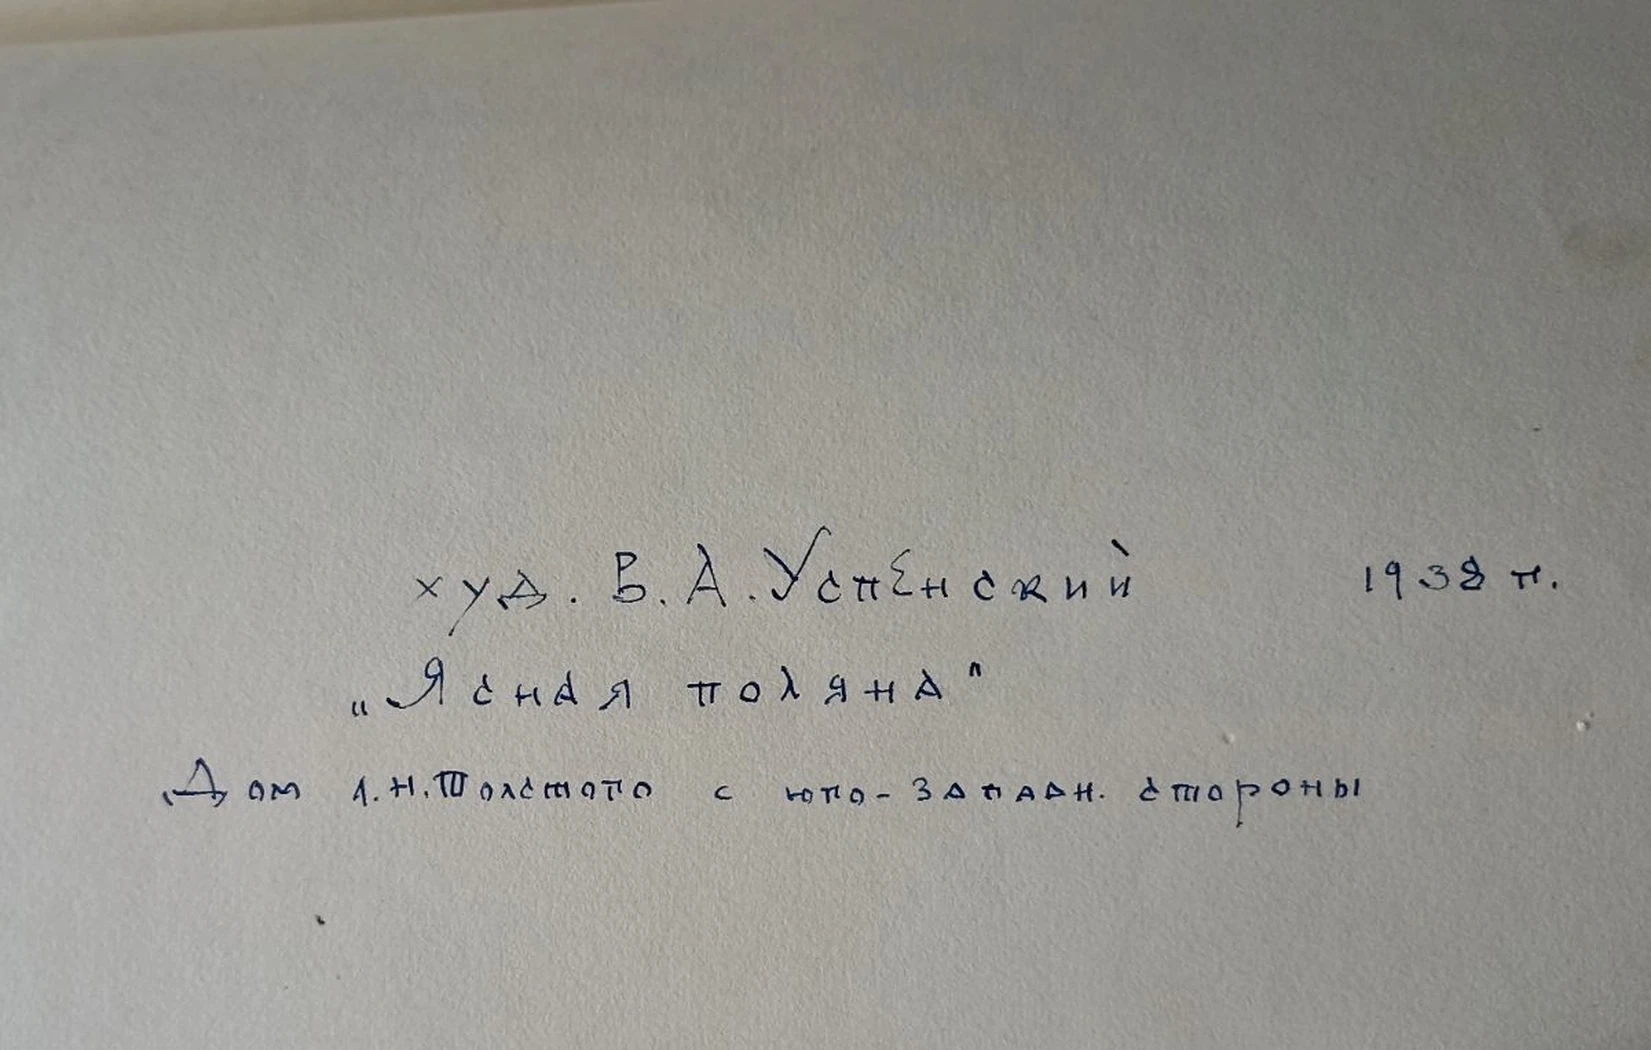 худ. В. А. Успенский 1938 г.
„Ясная поляна"
Дом Л.Н.Толстого с юго-западн. стороны